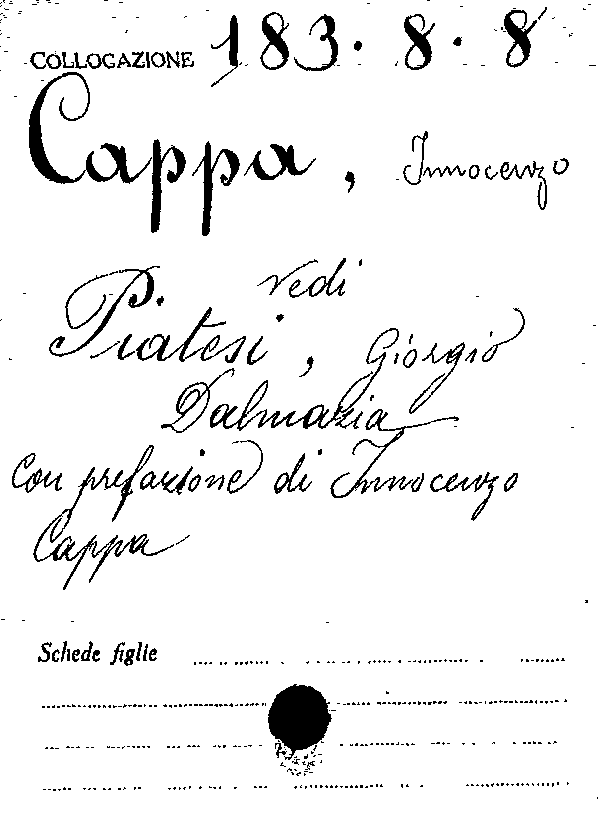 COLLOCAZIONE 183.8.8
Cappa, Innocenzo
vedi
Piatesi, Giorgio
Dalmazia
Con prefazione di Innocenzo
Cappa
Schede figlie